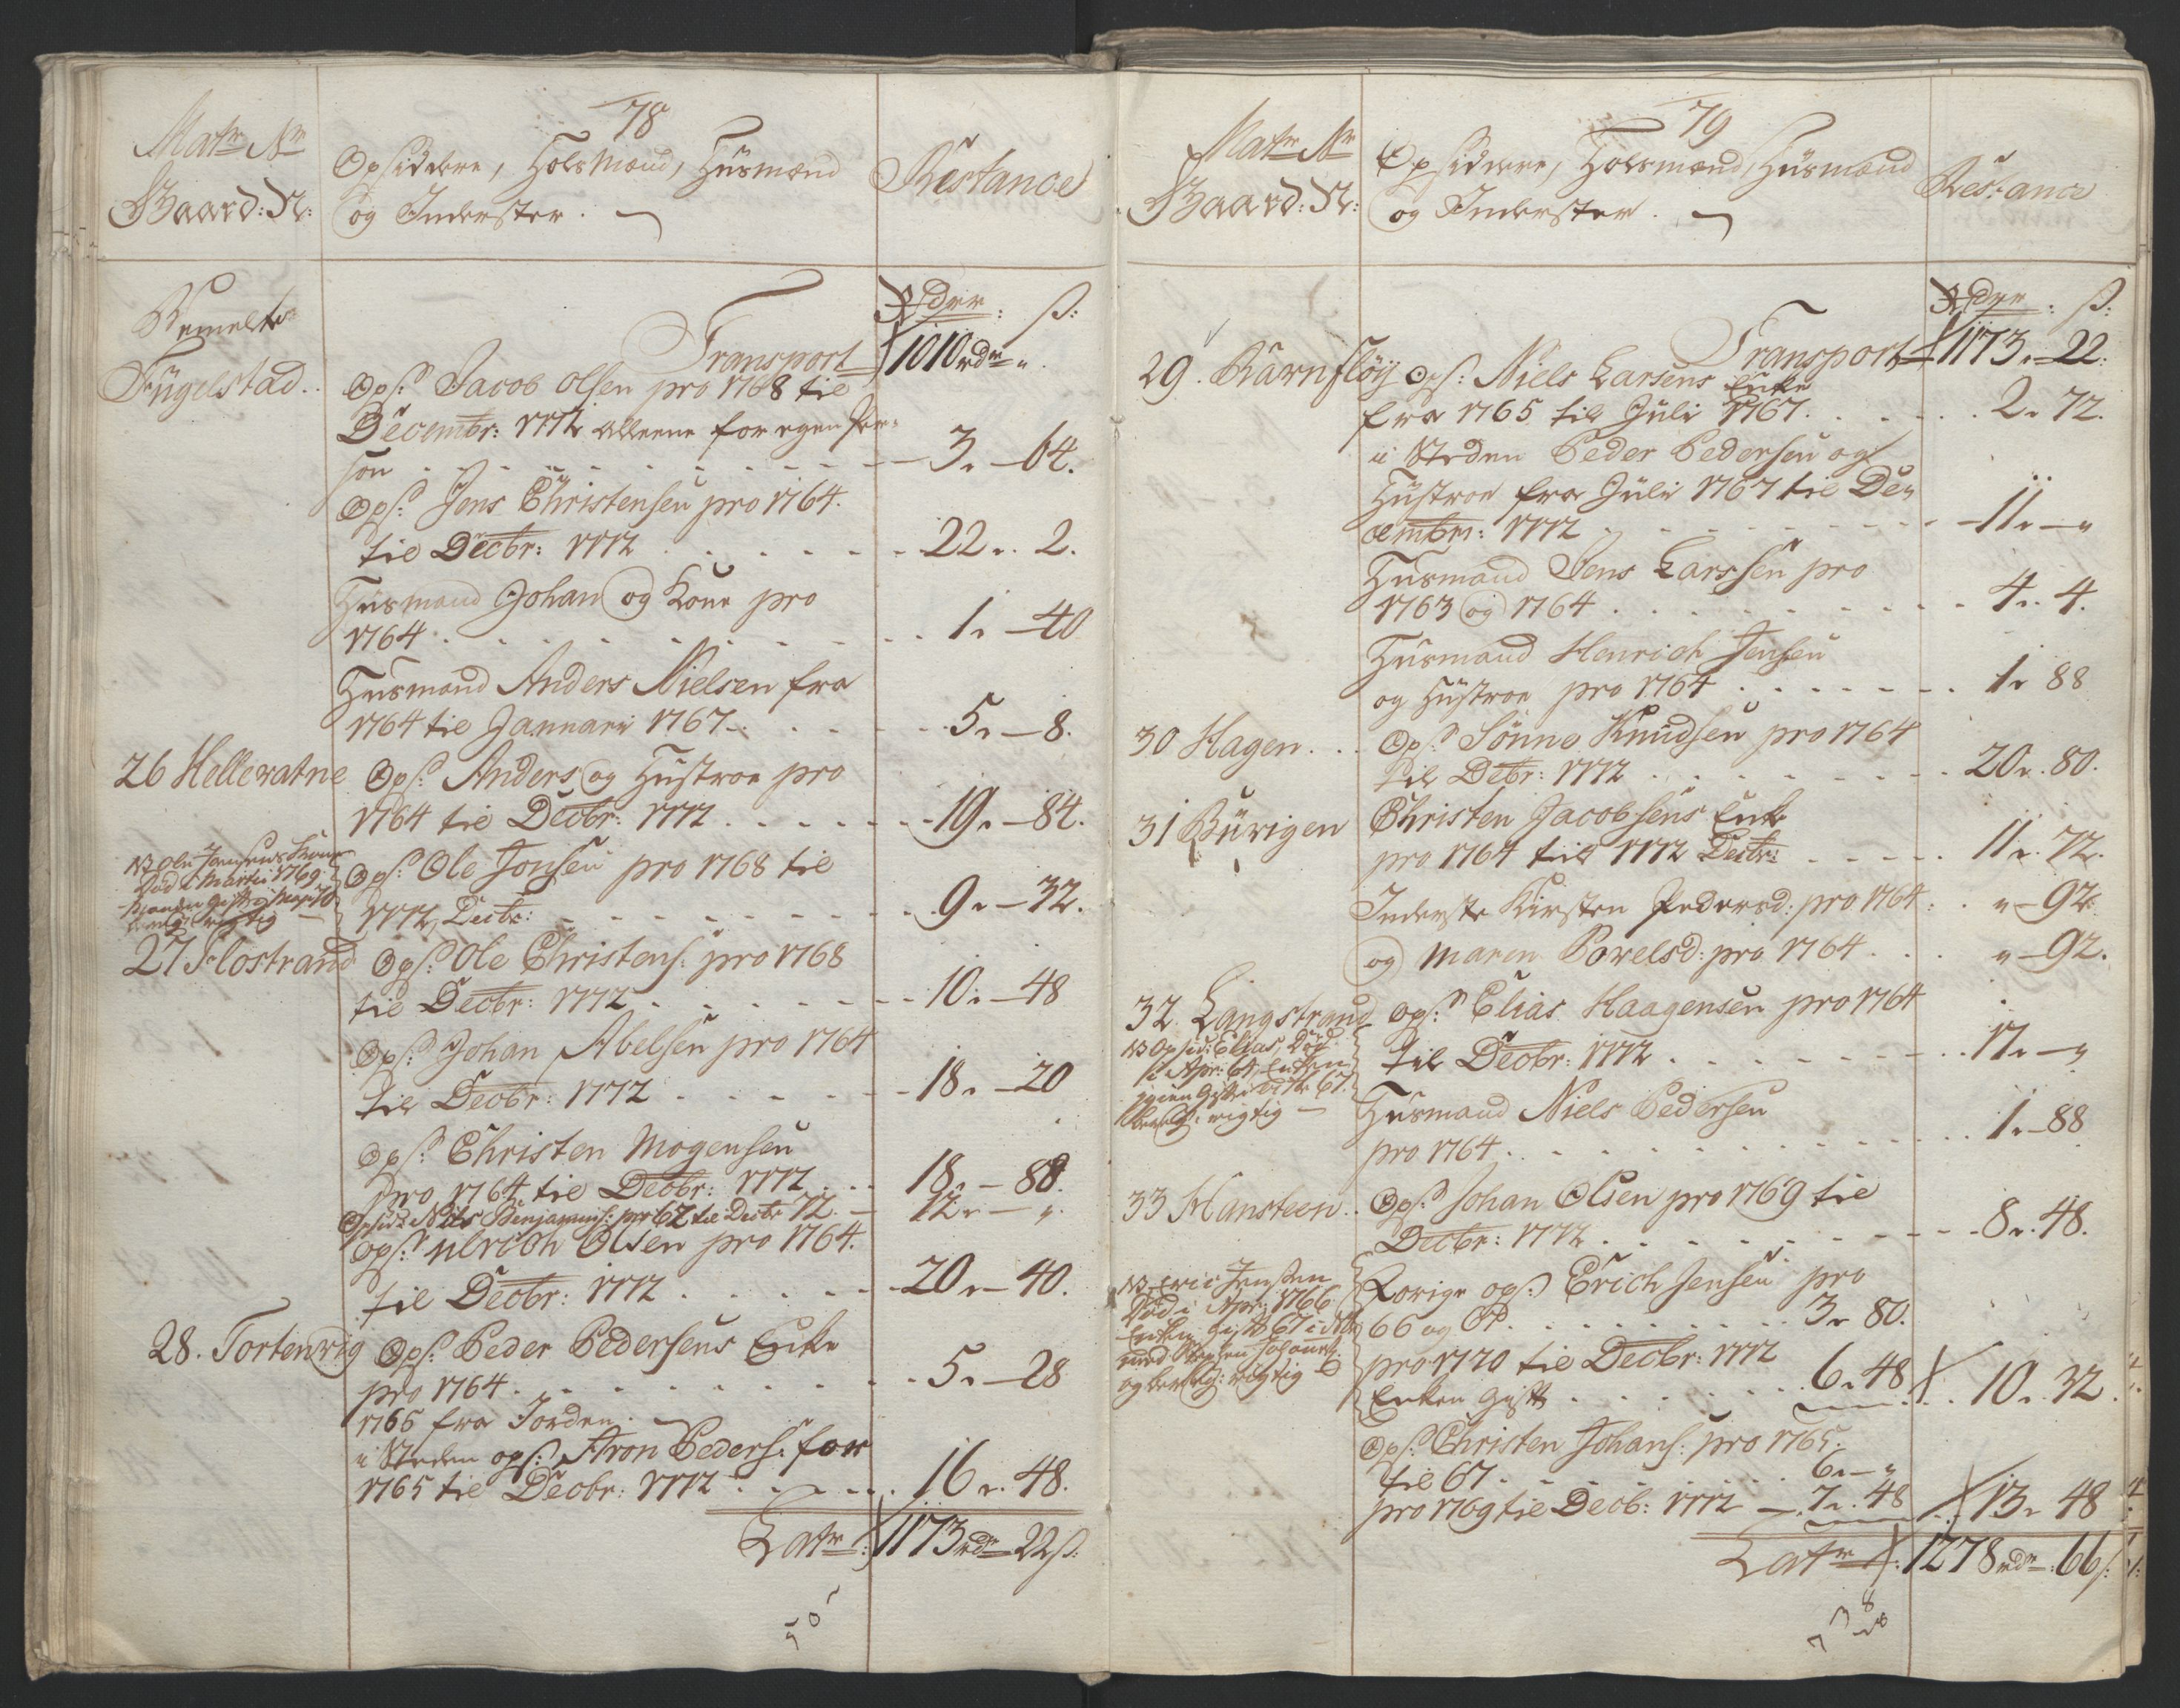 78
Matr Nr
Gaard: N:
Opsiddere, Holsmænd, Huusmænd
og Inderster.
Restance
Rdrr: ß:
Transport 1010 rdr „
Fugelstad.
Ops: Jacob Olsen pro 1768 til
Decembr: 1772 alleene for egen Per-
son 3. 64.
Ops: Jens Christensen pro 1764.
til Decbr: 1772 22. 2.
Huusmand Johan og Kone pro
1764 1. 40
Huusmand Anders Nielsen fra
1764 til Januari 1767 5. 8.
26 Helleratne Ops: Anders og Hustroe pro
1764 til Decbr: 1772 19. 84.
NB Ole Jonsens Kone
Død i Martii 1769
Ops: Ole Jonsen pro 1768 til
1772 Decbr: 9. 32.
27 Flostrand Ops: Ole Christens: pro 1768
til Decbr: 1772 10. 48
Ops: Johan Abelsen pro 1764
til Decbr: 1772 18. 20
Ops: Christen Mogensen
pro 1764 til Decbr: 1772 18. 88.
Opsid: Nils Benjamins: pro 67 til Decbr 72. 12. „
Ops: Ulrich Olsen pro 1764.
til Decbr: 1772 20. 40.
28. Tortenwig Ops: Peder Pedersens Enke
pro 1764 5. 28
1765 fra Jorden.
i Steden ops: Aron Peders: for
1765 til Decbr: 1772 16. 48.
Latr: 1173 rdr 22 ß:
79
Matr Nr
Gaard: N:
Opsiddere, Holsmænd, Huusmænd
og Inderster.
Restance
Rdrr: ß:
Transport 1173. 22.
29. Rarnfløy Ops: Niels Larsens Enke
fra 1765 til Juli 1767. 2. 72.
i Steden Peder Pedersen og
Hustroe fra Juli 1767 til De-
cembris: 1772 11. „
Huusmand Jens Larssen pro
1763 og 1764 4. 4.
Huusmand Henrich Jensen
og Hustroe pro 1764 1. 88
30 Hagen. Ops: Sönne Knudsen pro 1764
til Debr: 1772 20. 80.
31 Bürigen Christen Jacobsens Enke
pro 1764 til 1772 Decbr: 11. 72.
Inderste Kirsten Pedersd: pro 1764: „ 92.
og Maren Povelsd: pro 1764 „ 92.
32. Langstrand Ops: Elias Haagensen pro 1764
til Decbr: 1772 17. „
NB Opsid: Elias Død
i Apr: 64, Enken
igien Gift i 67.
rigtig
Huusmand Niels Pedersen
pro 1764 1. 88
33 Hansteen. Ops: Johan Olsen pro 1769 til
Decbr: 1772 8. 48.
NB Eric Jensen
Død i Apr: 1766
Enken Gift 67
rigtig
Forige ops: Erich Jensen pro
66 og 67. 3. 80.
pro 1770 til Decbr: 1772
Enken Gift 6. 48 10. 32.
Ops: Christen Johans: pro 1765.
til 67 6. „
pro 1769 til Decb: 1772 7. 48 13. 48
Latr: 1278 rdr: 66 ß: